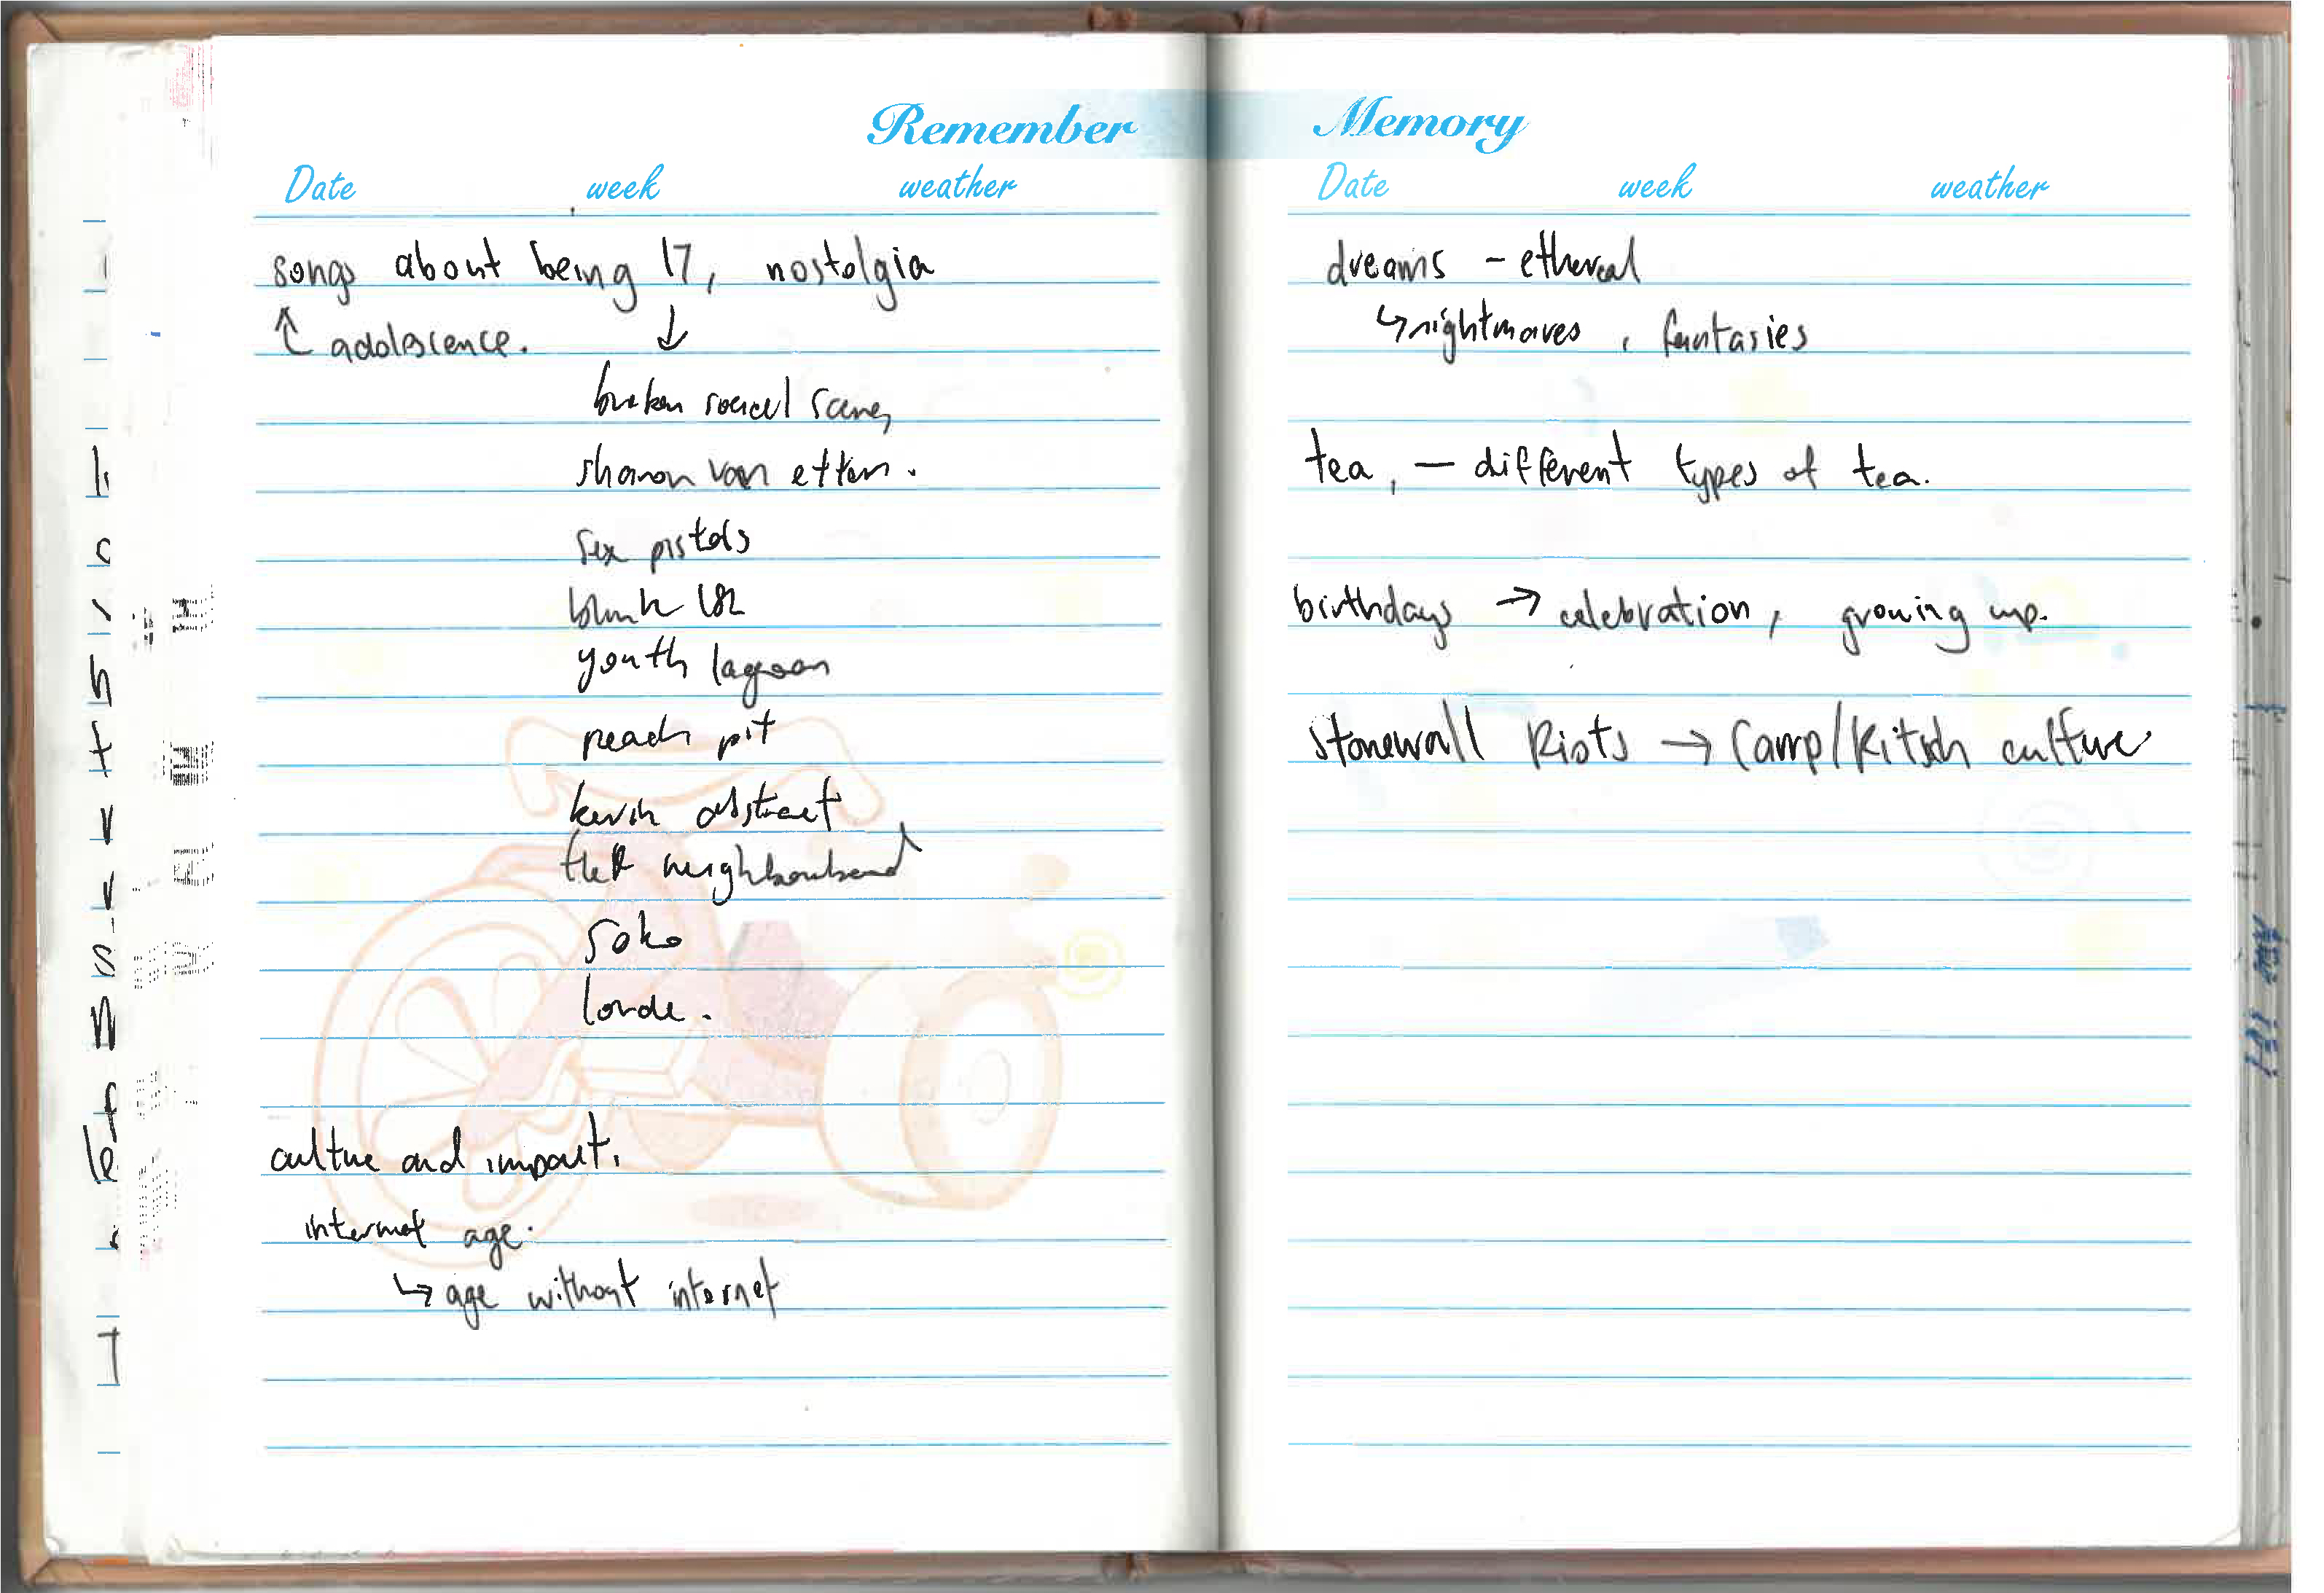 Remember
Date week weather
songs about being 17, nostalgia
↑ adolescence. ↓
broken social scene,
sharon van etten.
sex pistols
blink 182
youth lagoon
peach pit
kevin abstract
the neighbourhood
soko
lorde.
culture and impact.
internet age.
↳ age without internet
Memory
Date week weather
dreams - ethereal
↳ nightmares, fantasies
tea, — different types of tea.
birthdays → celebration, growing up.
Stonewall Riots → Camp/Kitsch culture